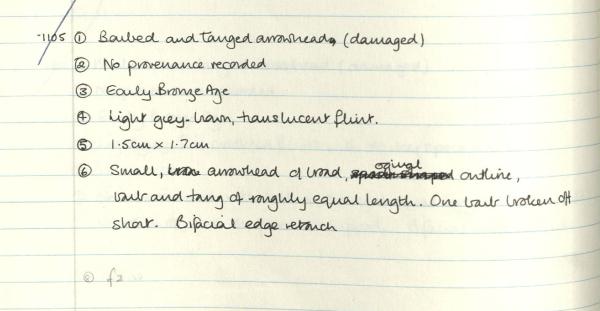 -1105 ① Barbed and tanged arrowhead, (damaged)
② No provenance recorded
③ Early Bronze Age
④ Light grey-brown, translucent flint.
⑤ 1.5cm x 1.7cm
⑥ Small, arrowhead of broad, ogival outline,
barb and tang of roughly equal length. One barb broken off
short. Bifacial edge retouch